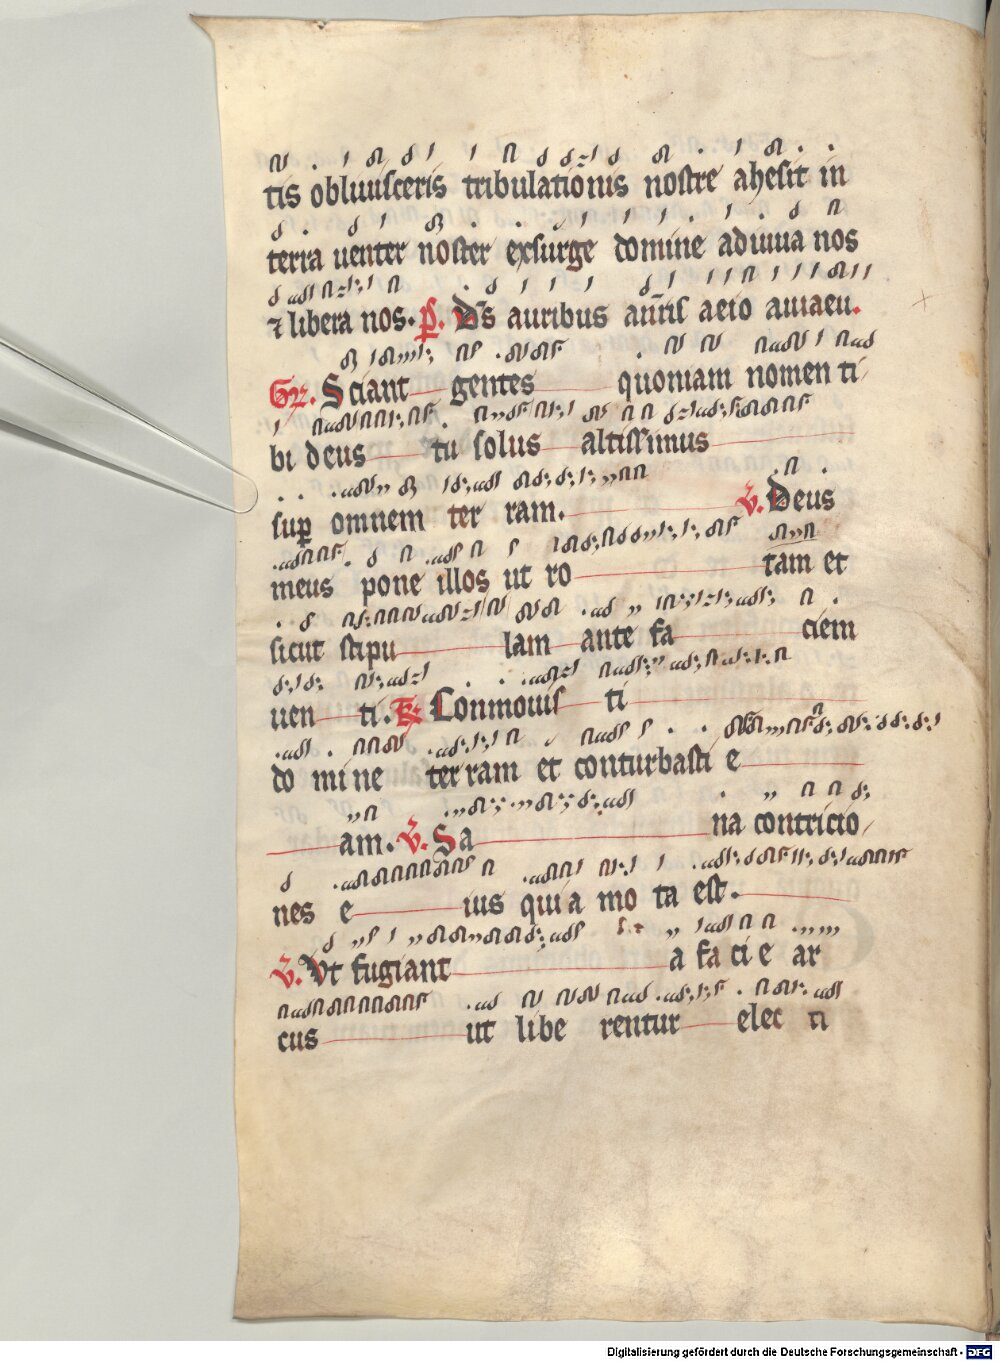 tis obliuisceris tribulationis nostre ahesit in
terra uenter noster exsurge domine adiuua nos
⁊ libera nos. p̃. Ds̄ auribus aūris aeio auiaeu.
Gr. Sciant gentes quoniam nomen ti
bi deus tu solus altissimus
sup̱ omnem ter ram. V. Deus
meus pone illos ut ro tam et
sicut stipu lam ante fa ciem
uen ti. Conmouis ti
do mi ne ter ram et conturbasti e
am. V. Sa na contricio
nes e ius qui a mo ta est.
V. Vt fugiant a fa ci e ar
cus ut libe rentur elec ti
Digitalisierung gefördert durch die Deutsche Forschungsgemeinschaft - DFG